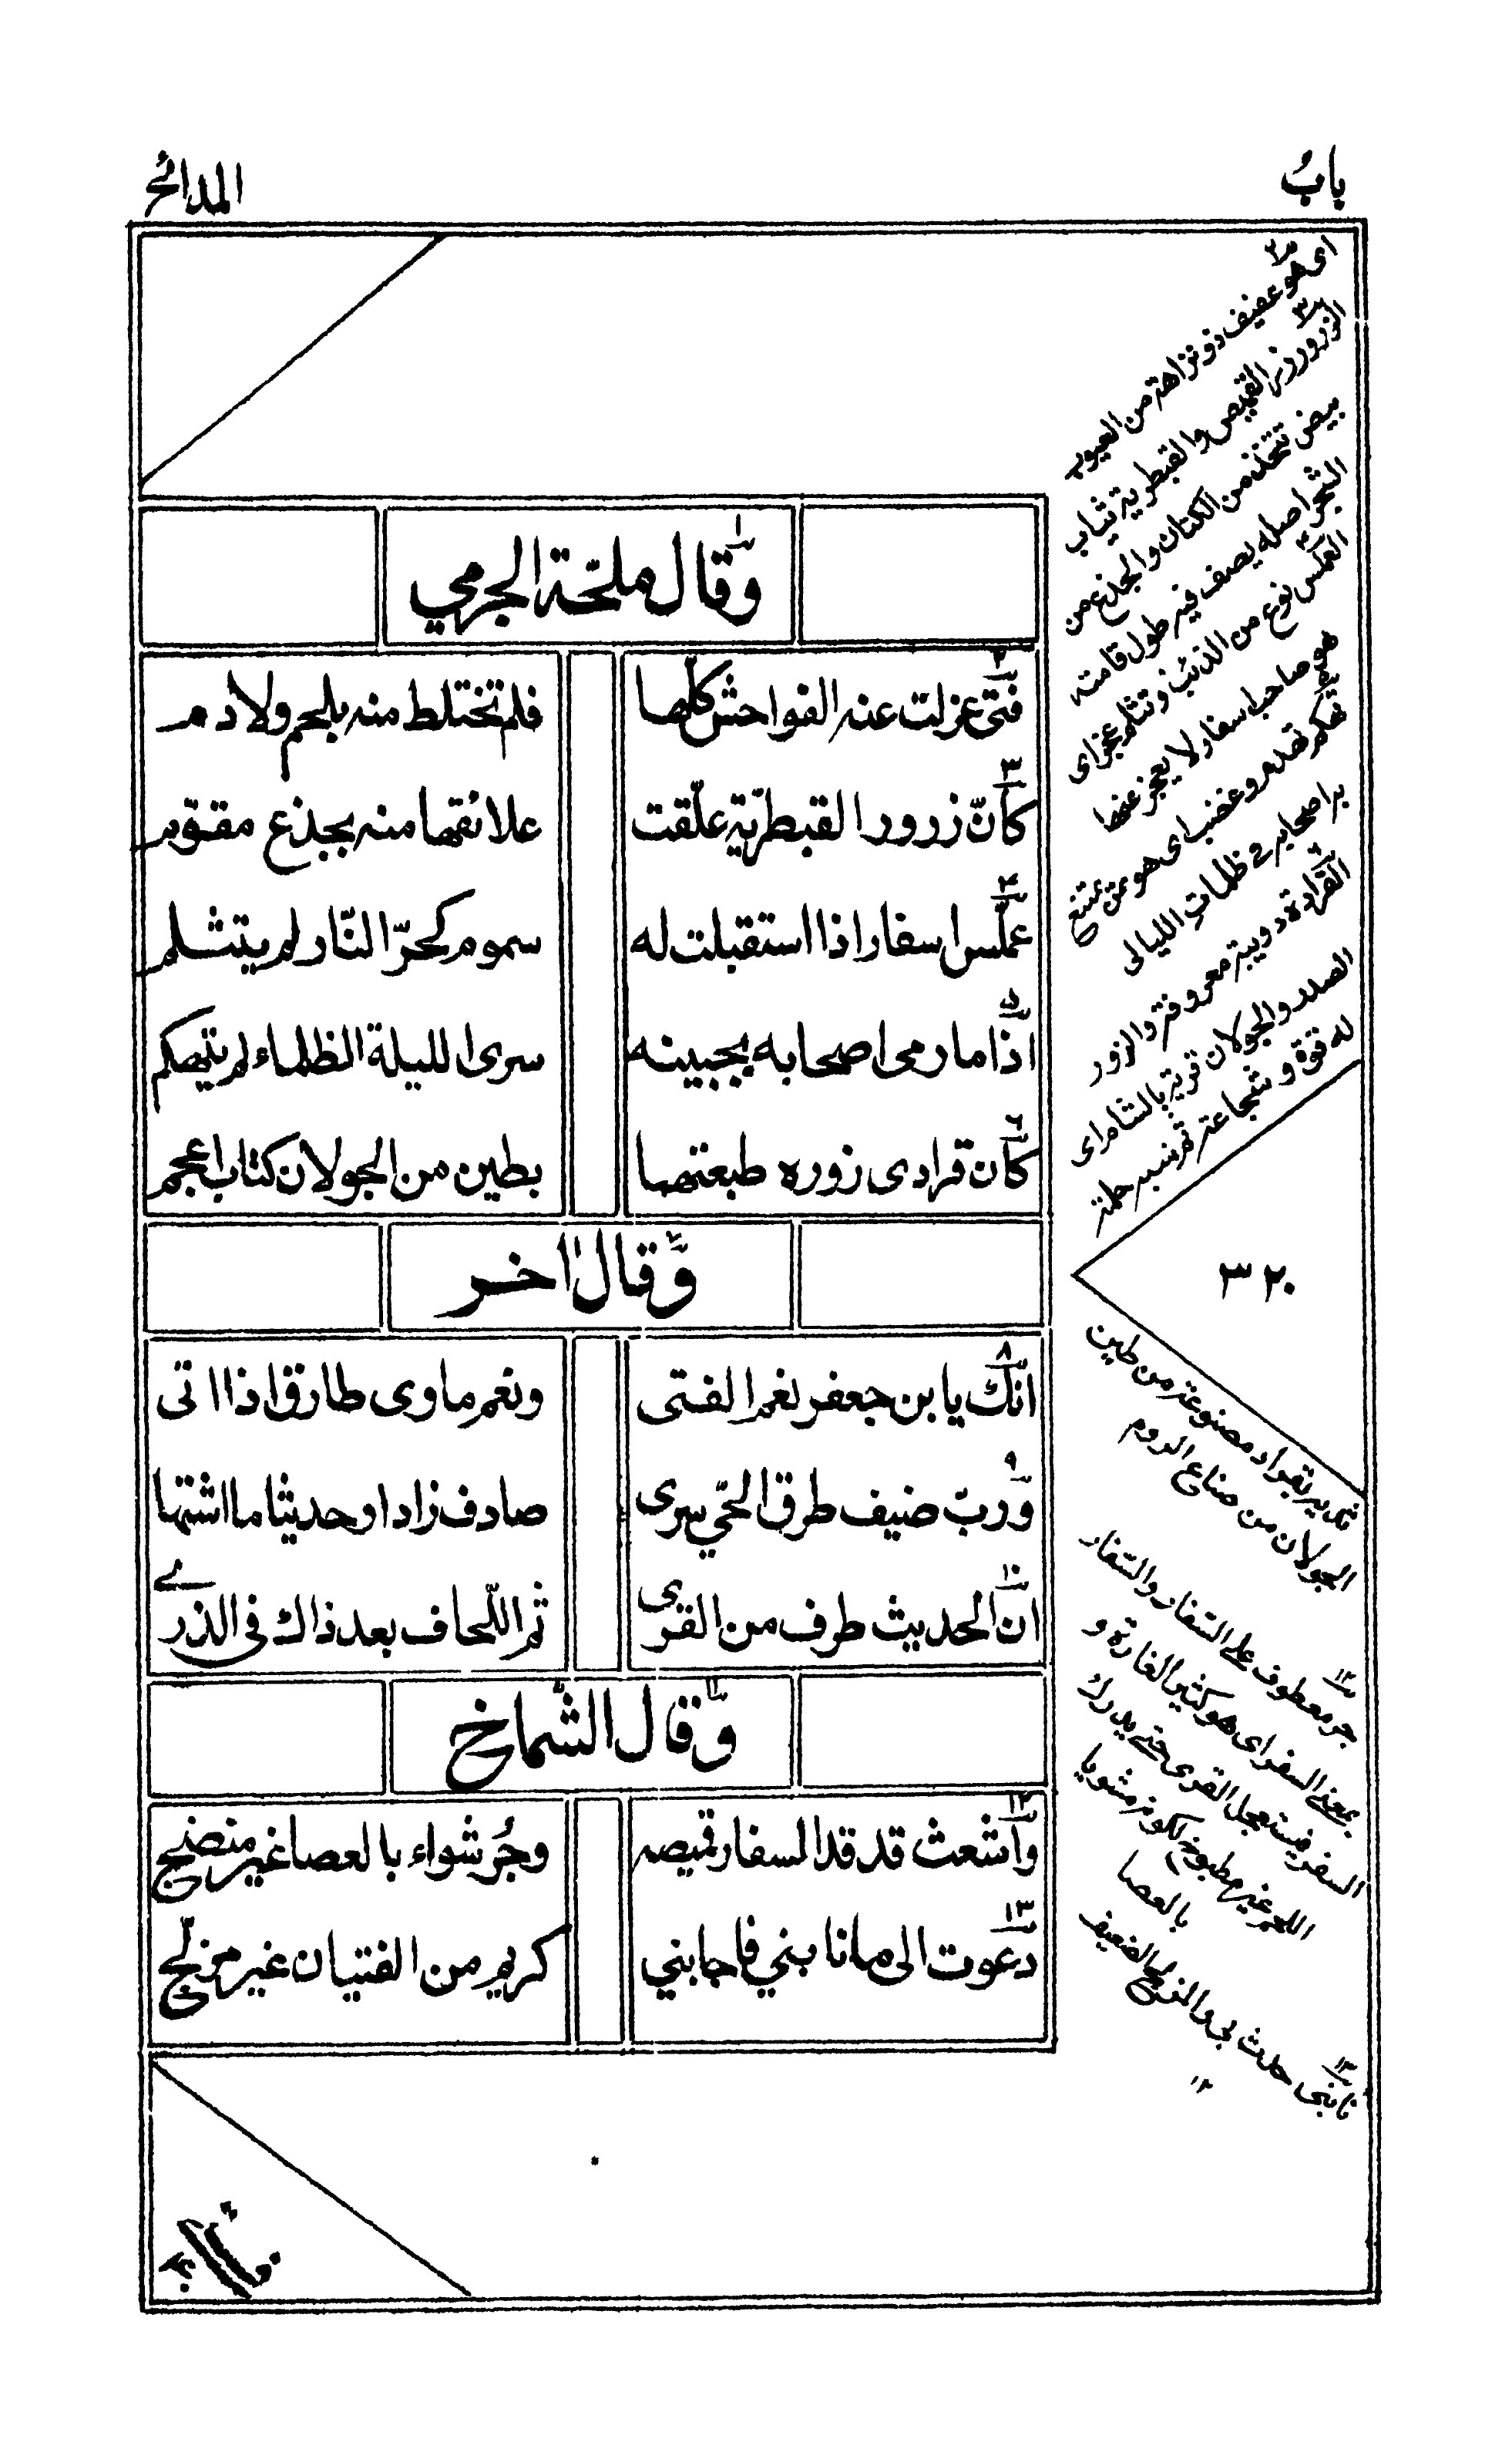 باب
المدائح
وقال ملحة الجرمي
فتى عزلت عنه الفواحش كلّها
فلم تختلط منه بلحم ولا دم
كأنّ زرور القبطريّة علّقت
علائقها منه بجذع مقوّم
عملّس اسفار اذا استقبلت له
سموم كحرّ النّار لم يتثلم
اذا ما رمى اصحابه بجبينه
سرى الليلة الظلماء لم يتهكم
كأن قرادى زوره طبعتهما
بطين من الجولان كتاب اعجم
وقال اٰخر
انّك يا ابن جعفر نعم الفتى
ونعم ماوى طارق اذا اتى
وربّ ضيف طرق الحيّ سرى
صادف زادا وحديثا ما اشتها
انّ الحديث طرف من القرى
ثم اللّحاف بعد ذاك فى الذرى
وقال الشّماخ
واشعث قد قد السفار قميصه
وجُر شواء بالعصا غير منضج
دعوت الى ما نابني فاجابني
كريم من الفتيان غير مزلّج
اى هو عفيف ذو نزاهة من العيوب
الزرور زر القميص والقبطرية ثياب
بيض تتخذ من الكتان والجذع من
الشجر اصله يصف فيه طول قامته
العملس نوع من الذئب وتثلم عجز اى
هو صاحب اسفار لا يعجز عنها
تهكم تهدم وغضب اى هو ممن يمتنع
به اصحابه فى ظلمات الليالى
القرادة دويبة معروفة والزور
الصدر والجولان قرية بالشام اى
له قوة وشجاعة ثم شبه حلمة
٣٢٠
ثديه بقراد مصنوعة من طين
الجولان من صناع الروم
جر معطوف على السفار والسفار
بمعنى السفر اى هو كثير الغارة و
السفر فيستعجل القرى حتى يدرك
اللحم غير مطبوخ لكونه مشويا
بالعصا
نابنى حدث بى والمزلج الضعيف
١٢